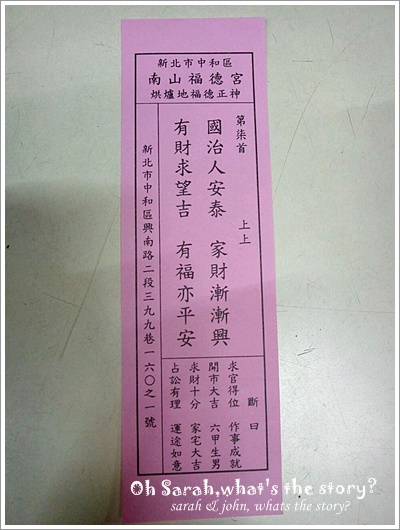 新北市中和區
南山福德宮
烘爐地福德正神
第柒首
上上
國治人安泰 家財漸漸興
有財求望吉 有福亦平安
斷曰
求官得位 作事成就
開市大吉 六甲生男
求財十分 家宅大吉
占訟有理 運途如意
新北市中和區興南路二段三九九巷一六〇之一號
Oh Sarah,what's the story?
sarah & john, whats the story?